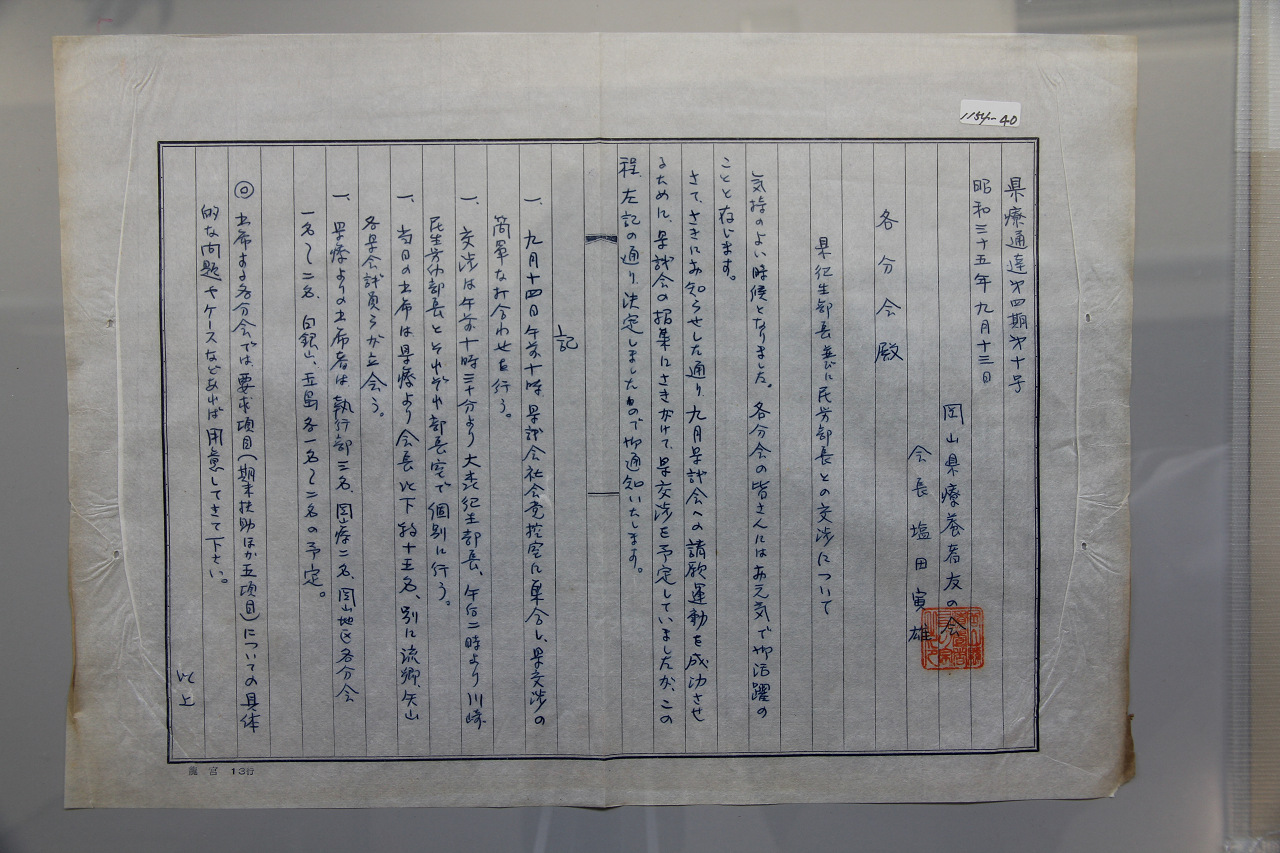 1154-40
県療通達第四期第十号
昭和三十五年九月十三日
岡山県療養者友の会
会長 塩田寅雄
各分会殿
県紀生部長並びに民労部長との交渉について
気持のよい時候となりました。各分会の皆さんにはお元気で御活躍の
ことと存じます。
さて、さきにお知らせした通り、九月県議会への請願運動を成功させ
るために、県議会の招集にさきがけて、県交渉を予定していましたが、この
程、左記の通り、決定しましたもので御通知いたします。
記
一、九月十四日午前十時、県議会社会党控室に集合し、県交渉の
簡単な打合わせを行う。
一、交渉は午前十時三十分より大森紀生部長、午后二時より川崎
民生労働部長とそれぞれ部長室で個別に行う。
一、当日の出席は県療より会長以下数十五名、別に流郷、矢山
各県会議員らが立会う。
一、県療よりの出席者は執行部三名、岡療二名、岡山地区各分会
一名〜二名、白銀山、玉島各一名〜二名の予定。
◎出席する各分会では、要求項目(期末扶助ほか五項目)についての具体
的な問題やケースなどあれば用意してきて下さい。
以上
龍宮 13行